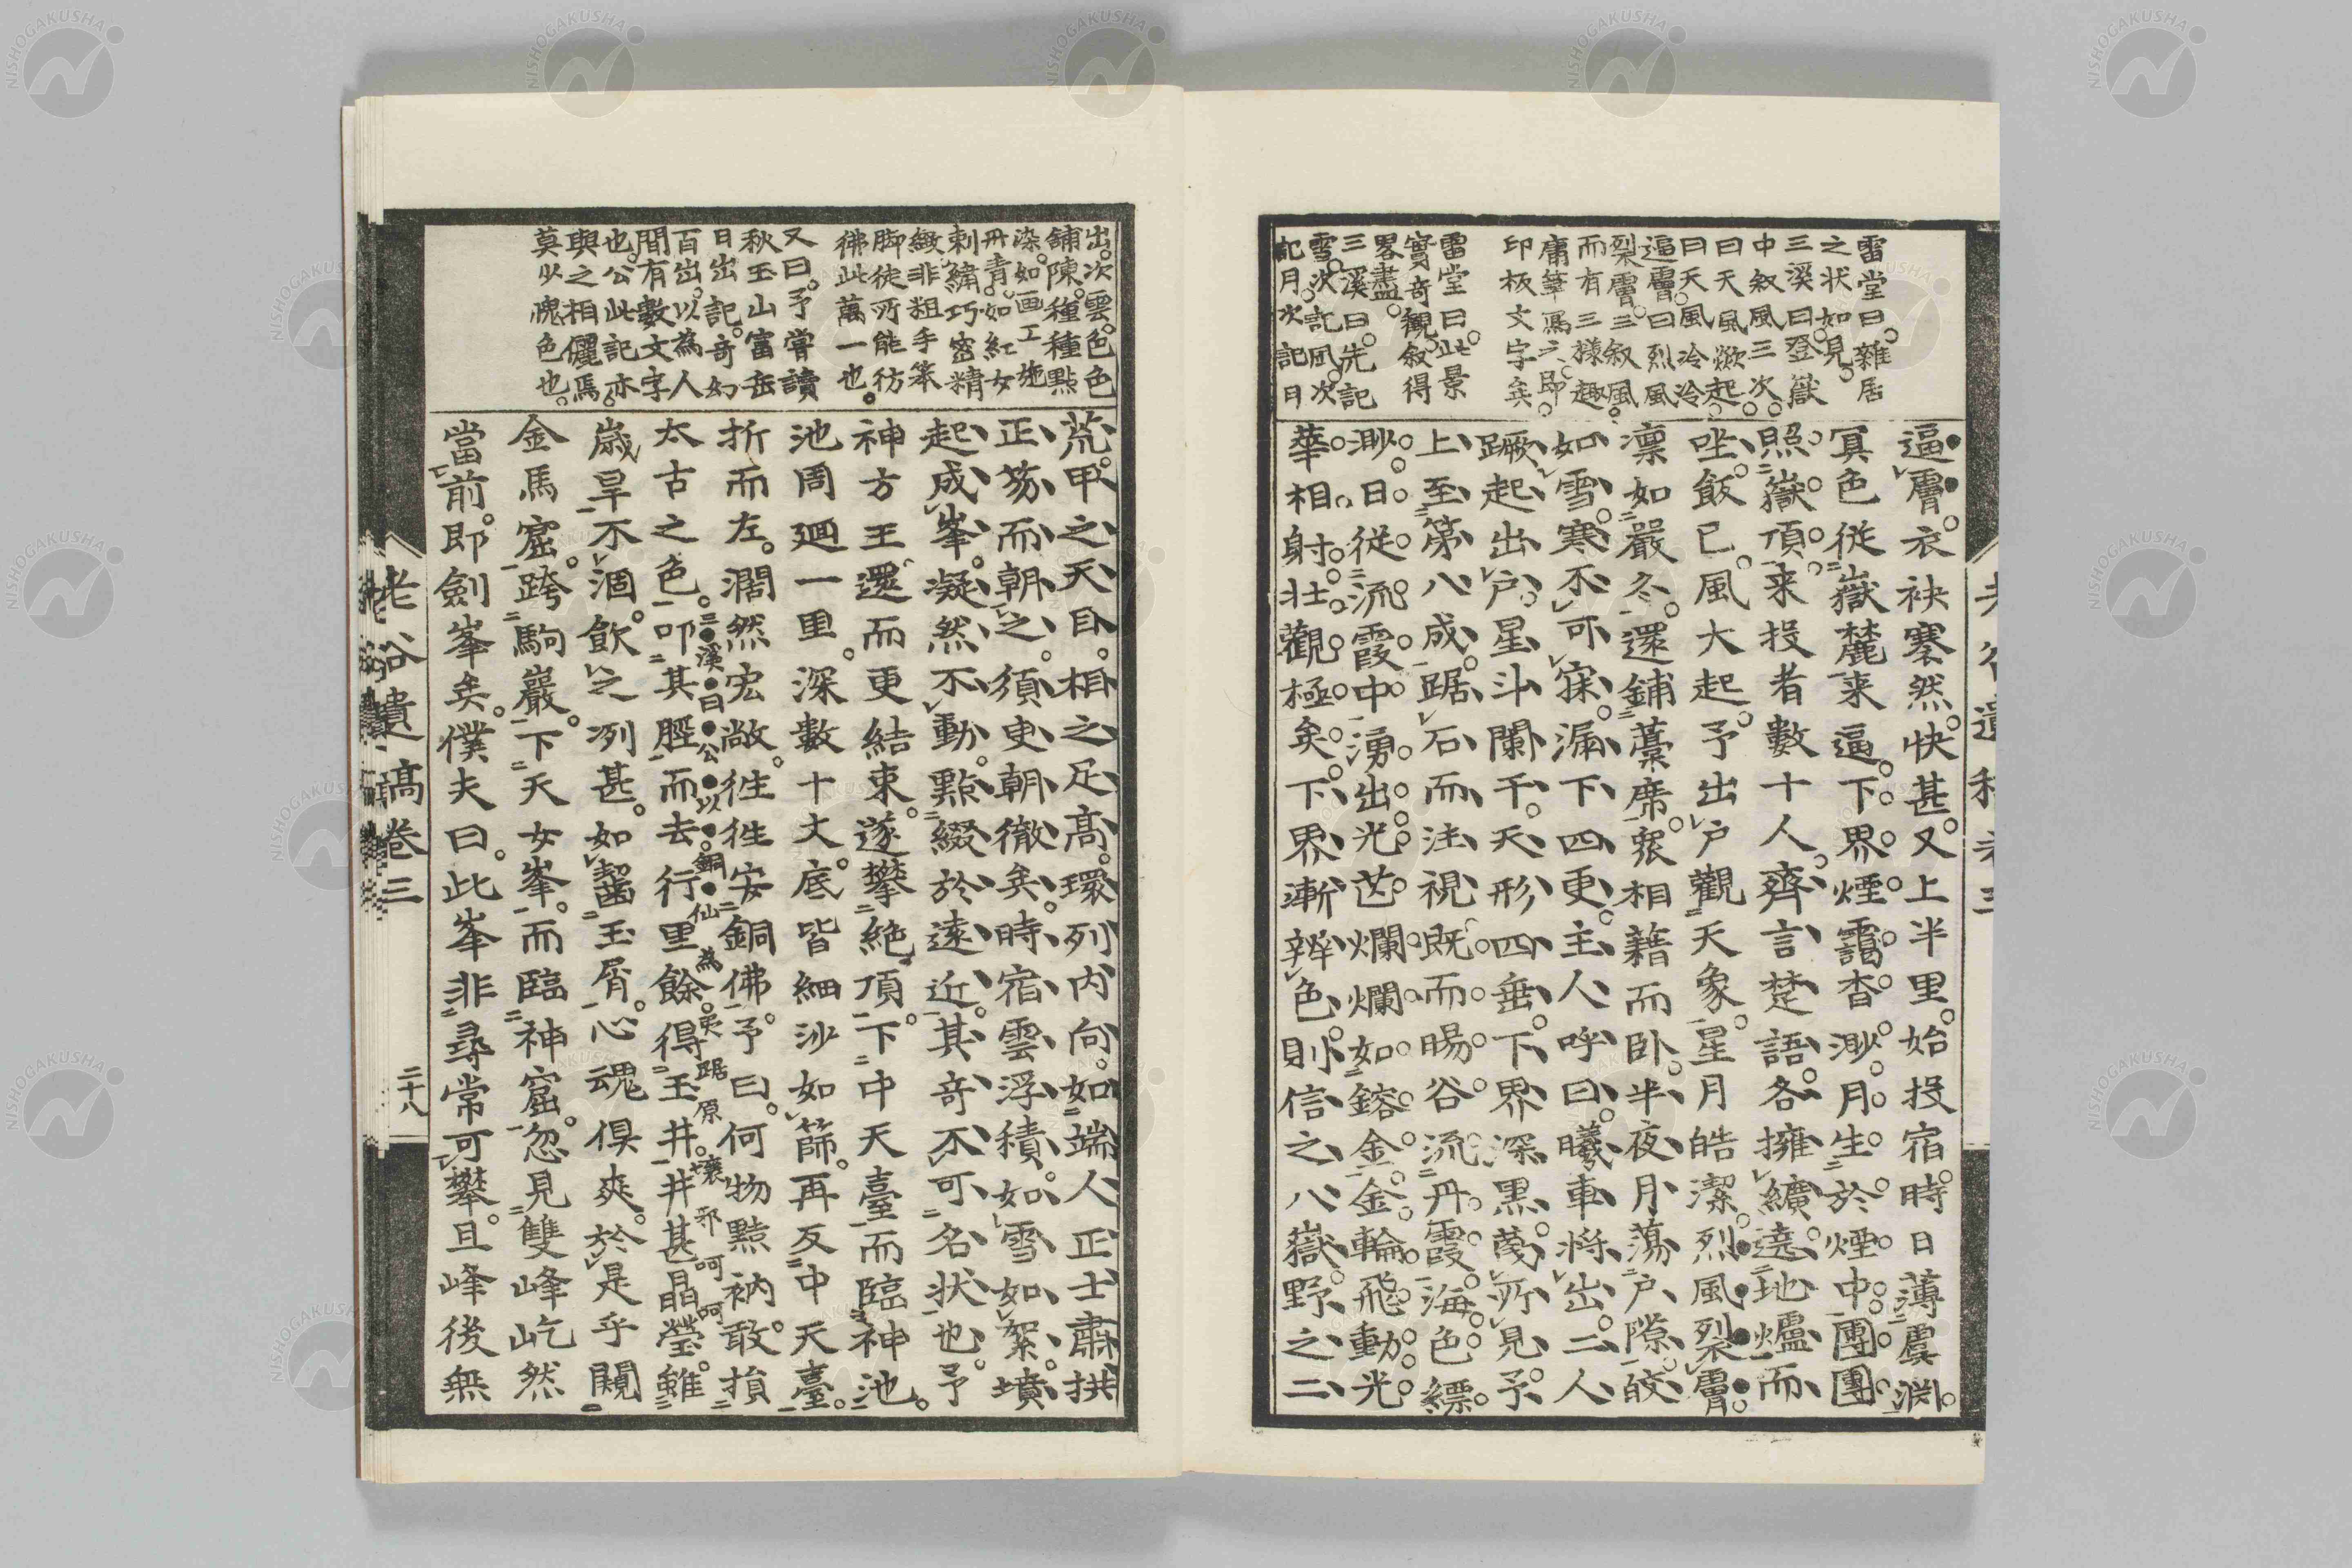 雷堂曰。雜居
之状如見。
三溪曰。登嶽
中叙風三次。
曰天風歘起。
曰天風冷冷
逼膚。曰烈風
裂膚。三叙風。
而有三様趣
庸筆寫六即。
印板文字矣
雷堂曰。此景
實奇觀。叙得
畧盡。
三溪曰。先記
雪。次記風。次
記月。次記日
逼膚。衣袂褰然。快甚。又上半里。始投宿。時日薄虞淵。
冥色從嶽麓来逼。下界煙靄杳渺。月生於煙中。團團
照嶽頂。来投者數十人。齊言楚語。各擁纊遶地爐而
坐。飯已。風大起。予出戸觀天象。星月皓潔。烈風裂膚。
凛如嚴冬。還鋪藁席。衆相藉而臥。半夜月蕩戸隙。皎
如雪。寒不可寐。漏下四更。主人呼曰。曦車将出。二人
蹶起出戸。星斗闌干。天形四垂。下界深黒。蔑所見。予
上至第八成。踞石而注視。既而暘谷流丹。霞海色縹
渺。日從流霞中湧出。光芒爛爛。如鎔金。金輪飛動。光
華相射。壮觀極矣。下界漸辨色。則信之八嶽。野之二
老谷遺稿卷三
出。次雲。色色
舗陳。種種點
染。如画工施
丹青。如紅女
刺繍。巧密精
緻。非粗手笨
脚徒所能彷
彿此萬一也。
又曰。予嘗讀
秋玉山富岳
日出記。奇幻
百出。以為人
間有數文字
也。公此記亦
與之相儷焉。
莫以愧色也。
荒。甲之天目。相之足高。環列内向。如端人正士肅拱
正笏而朝之。須史朝徹矣。時宿雲浮積。如雪如絮。墳
起成峯。凝然不動。點綴於遠近。其奇不可名状也。予
神方王。還而更結束。遂攀絶頂。下中天臺。而臨神池。
池周廻一里。深數十丈。底皆細沙如篩。再反中天臺。
折而左。濶然宏敞。徃徃安銅佛。予曰。何物黠衲。敢損
太古之色。叩其脛而去。行里餘。得玉井。井甚晶瑩。雖
三溪曰。公以銅仙為夷踞原壤邪。呵呵
歳旱不涸。飲之冽甚。如齧玉屑。心魂倶爽。於是乎闚
金馬窟。跨駒巖。下天女峯。而臨神窟。忽見雙峰屹然
當前。即劍峯矣。僕夫曰。此峯非尋常可攀。且峰後無
老谷遺稿卷三
二十八